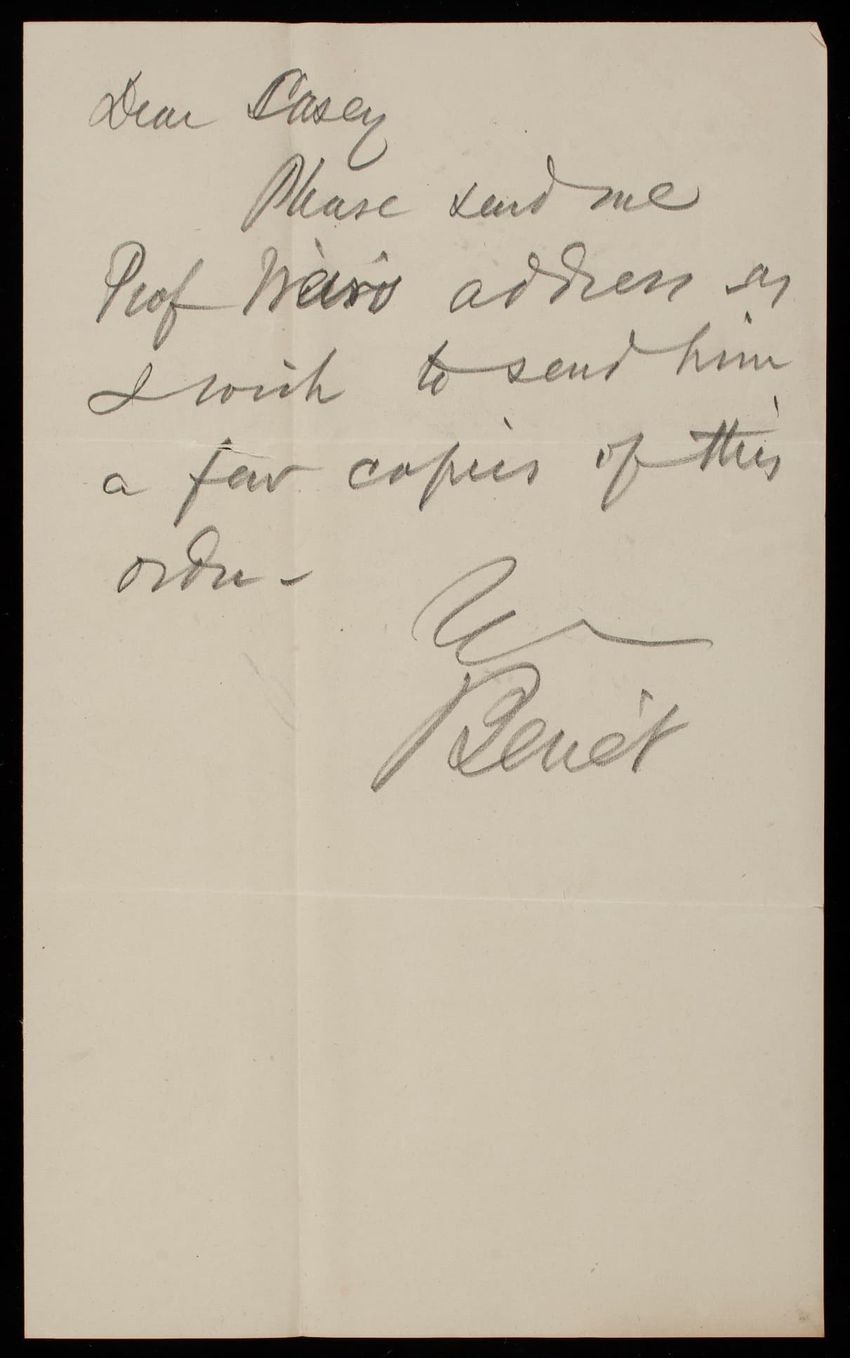 Dear Casey
Please send me
Prof Weir's address as
I wish to send him
a few copies of this
order -
Benét